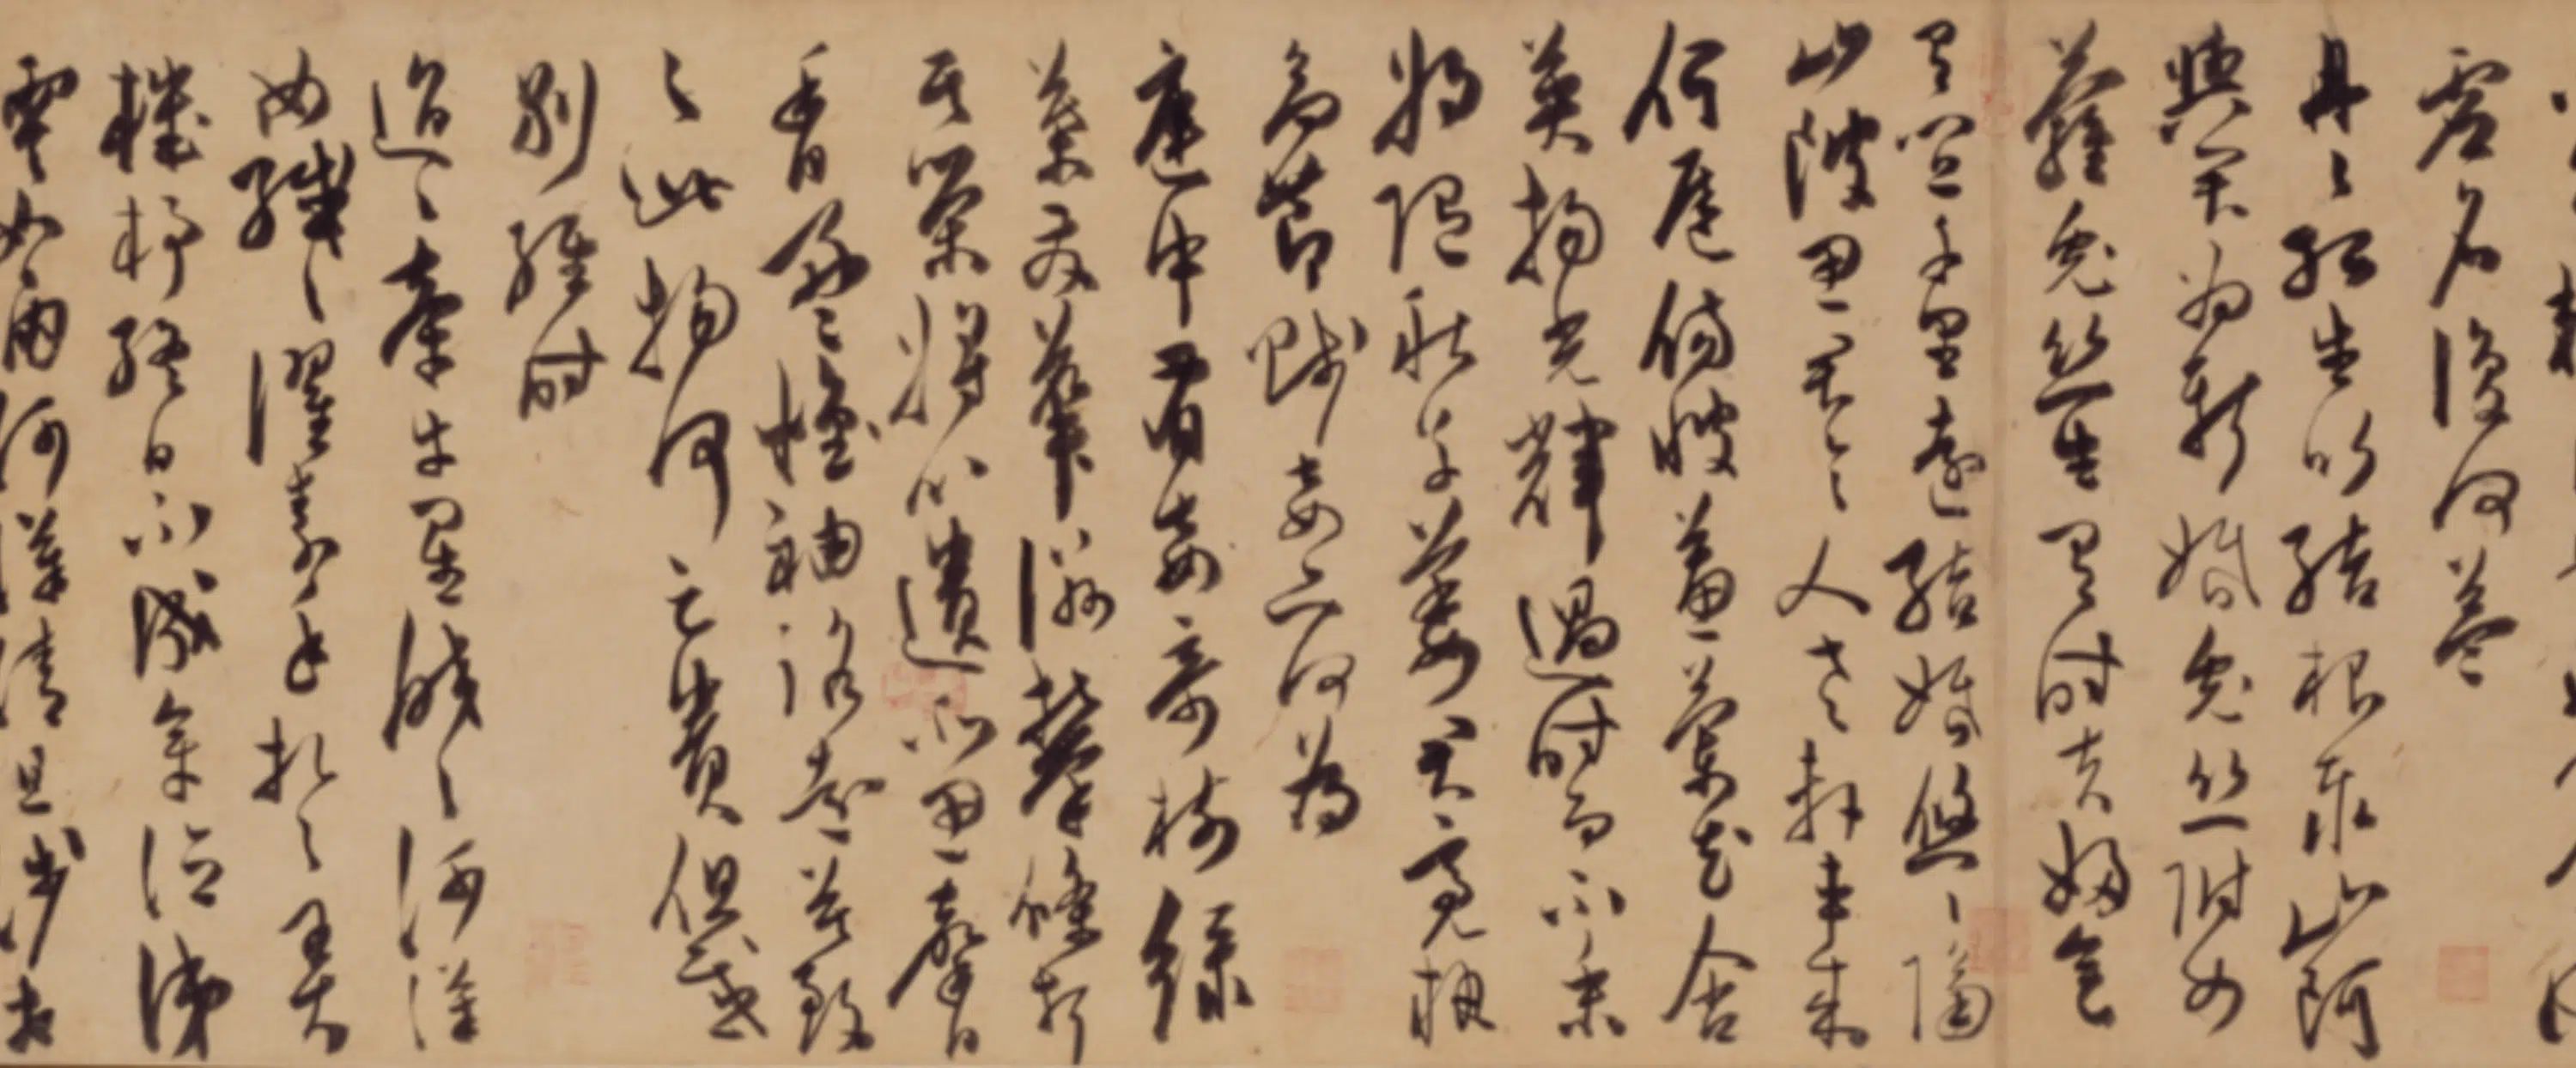 虛名復何益
冉〻孤生竹結根泰山阿
與君為新婚兔絲附女
蘿兔絲生有時夫婦會
有宜千里遠結婚悠〻隔
山陂思君令人老軒車來
何遲傷彼蕙蘭花含
英揚光輝過時而不采
將隨秋草萎君亮執
高節賤妾亦何為
庭中有奇樹綠
葉發華滋攀條折
其榮將以遺所思馨
香盈懷袖路遠莫致
之此物何足貴但感
別經時
迢〻牽牛星皎〻河漢
女纖〻濯素手札〻弄
機杼終日不成章泣涕
零如雨河漢清且淺相